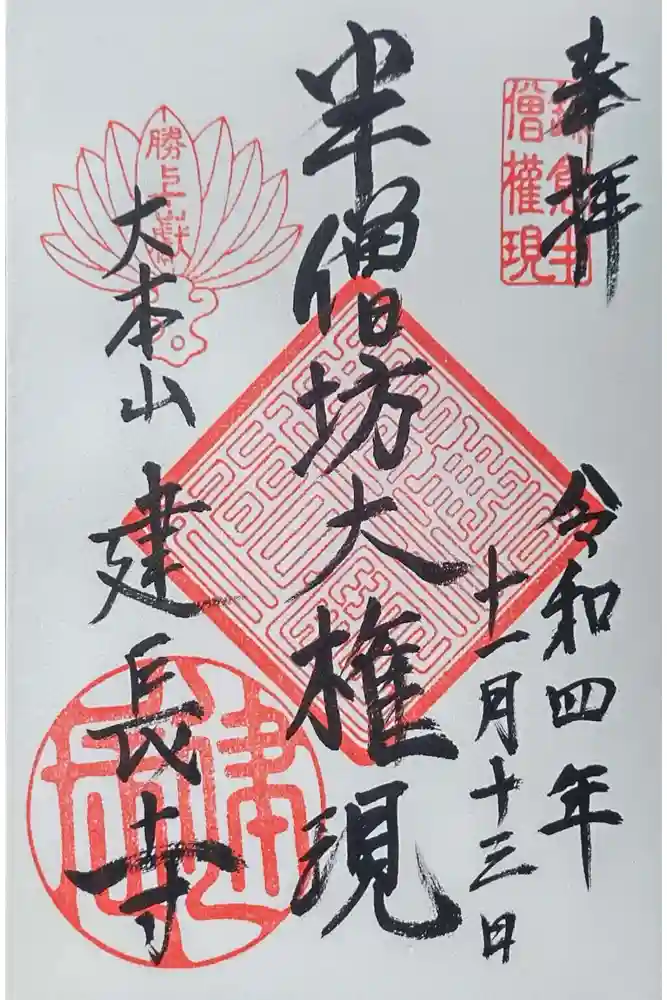 奉拝
鎌倉半
僧權現
令和四年
十一月十三日
半僧坊大権現
勝上嶽
大本山
建長寺